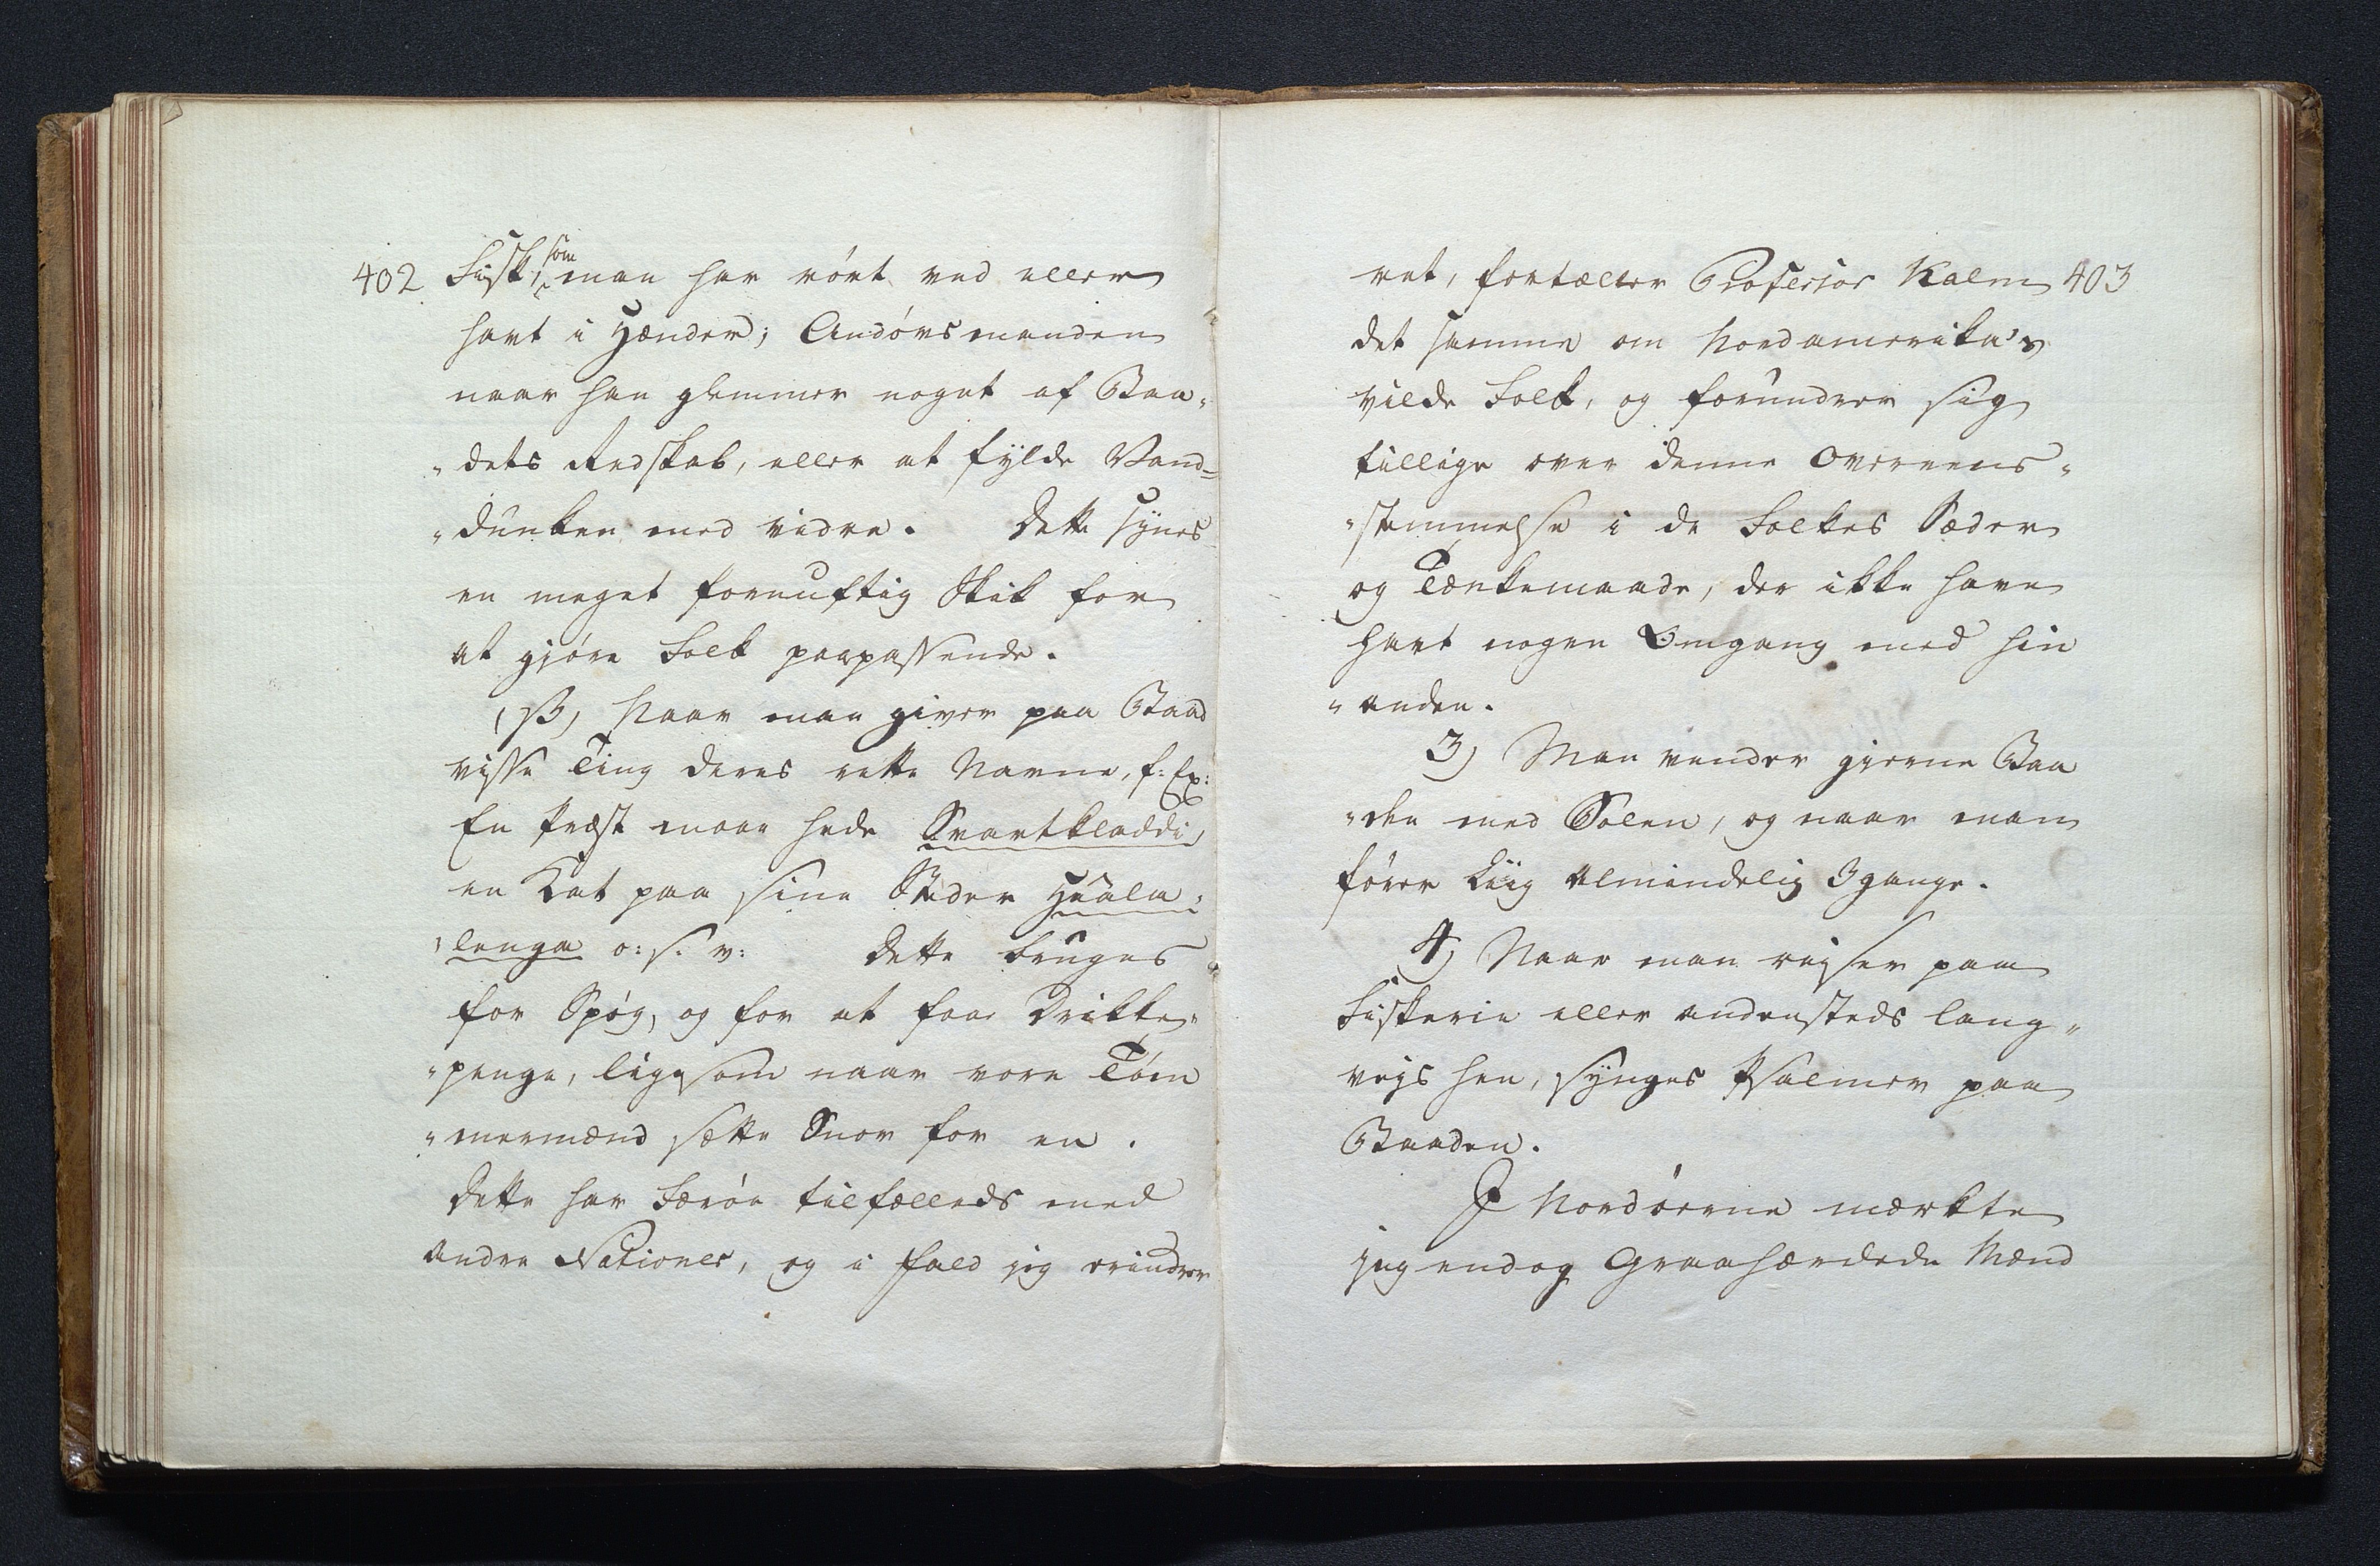 402 Fisk, som man har rört ved eller
havt i Hænder; Andövsmanden
naar han glemmer noget af Baa„
„dets Redskab, eller at fylde Vand=
„dunken med videre. Dette synes
en meget fornuftig Skik for
at gjöre Folk paapassende.
(β) Naar man giver paa Baad
visse Ting deres rette Navne, f: Ex:
En Præst maae hede Svartkladdi,
en Kat paa sine Steder Huala„
„lenga o: s. v: Dette bruges
for Spög, og for at faae Drikke„
„penge, ligesom naar vore Töm
„mermænd sætte Snor for en.
Dette har Færöe tilfælleds med
andre Nationer, og i fald jeg erindrer
ret, fortæller Professor Kalm 403
det samme om Nordamerika's
vilde Folk, og forundrer sig
tillige over denne Overeens„
„stemmelse i de Folkes Sæder
og Tænkemaade, der ikke have
havt nogen Omgang med hin
„anden.
3) Man vender gierne Baa
„den med Solen, og naar man
förer Liig almindelig 3 gange.
4) Naar man rejser paa
Fiskerie eller andensteds lang„
vejs hen, synges Psalmer paa
Baaden.
I Nordöerne mærkte
jeg endog Graahærdede Mænd